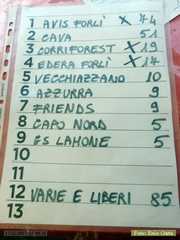 1 AVIS FORLÌ X 44
2 CAVA 51
3 CORRIFOREST X 19
4 EDERA FORLÌ X 14
5 VECCHIAZZANO 10
6 AZZURRA 9
7 FRIENDS 9
8 CAPO NORD 5
9 GS LAMONE 5
10
11
12 VARIE E LIBERI 85
13